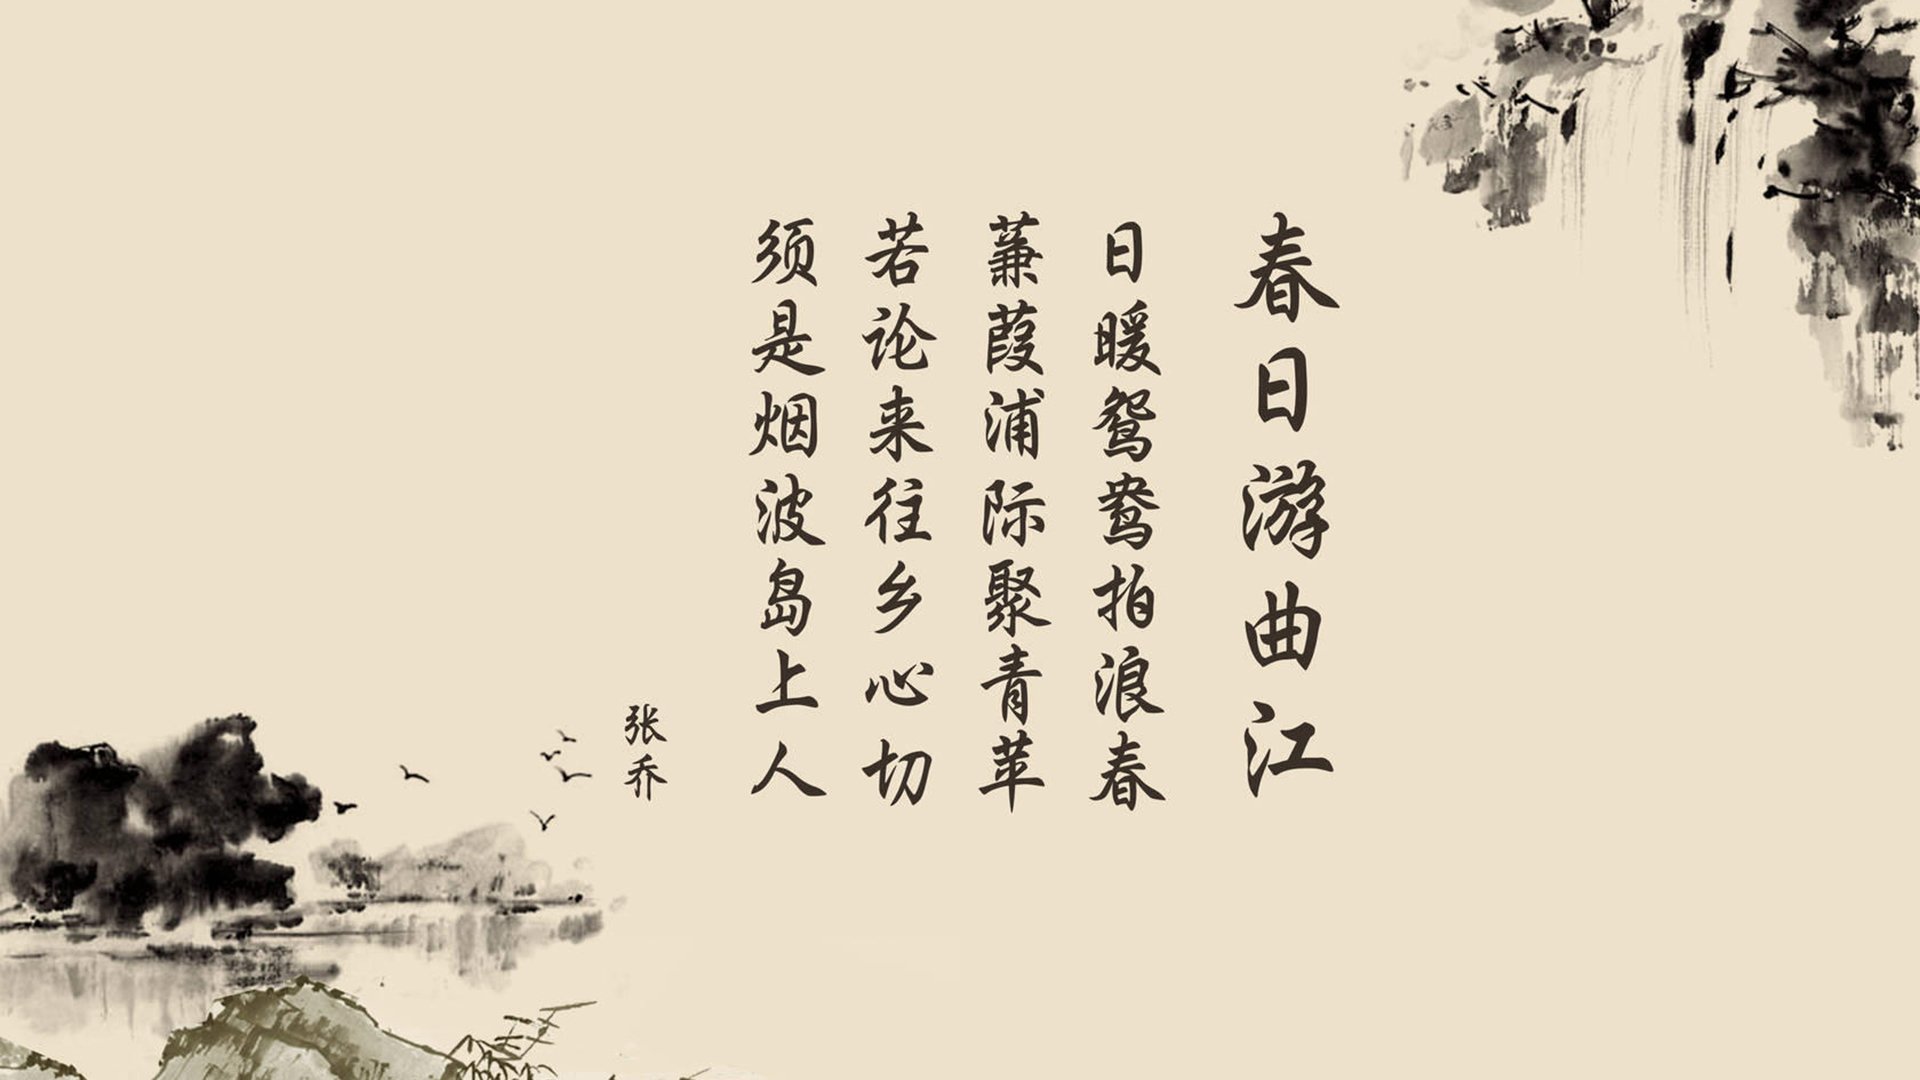 春日游曲江
日暖鸳鸯拍浪春
蒹葭浦际聚青苹
若论来往乡心切
须是烟波岛上人
张乔